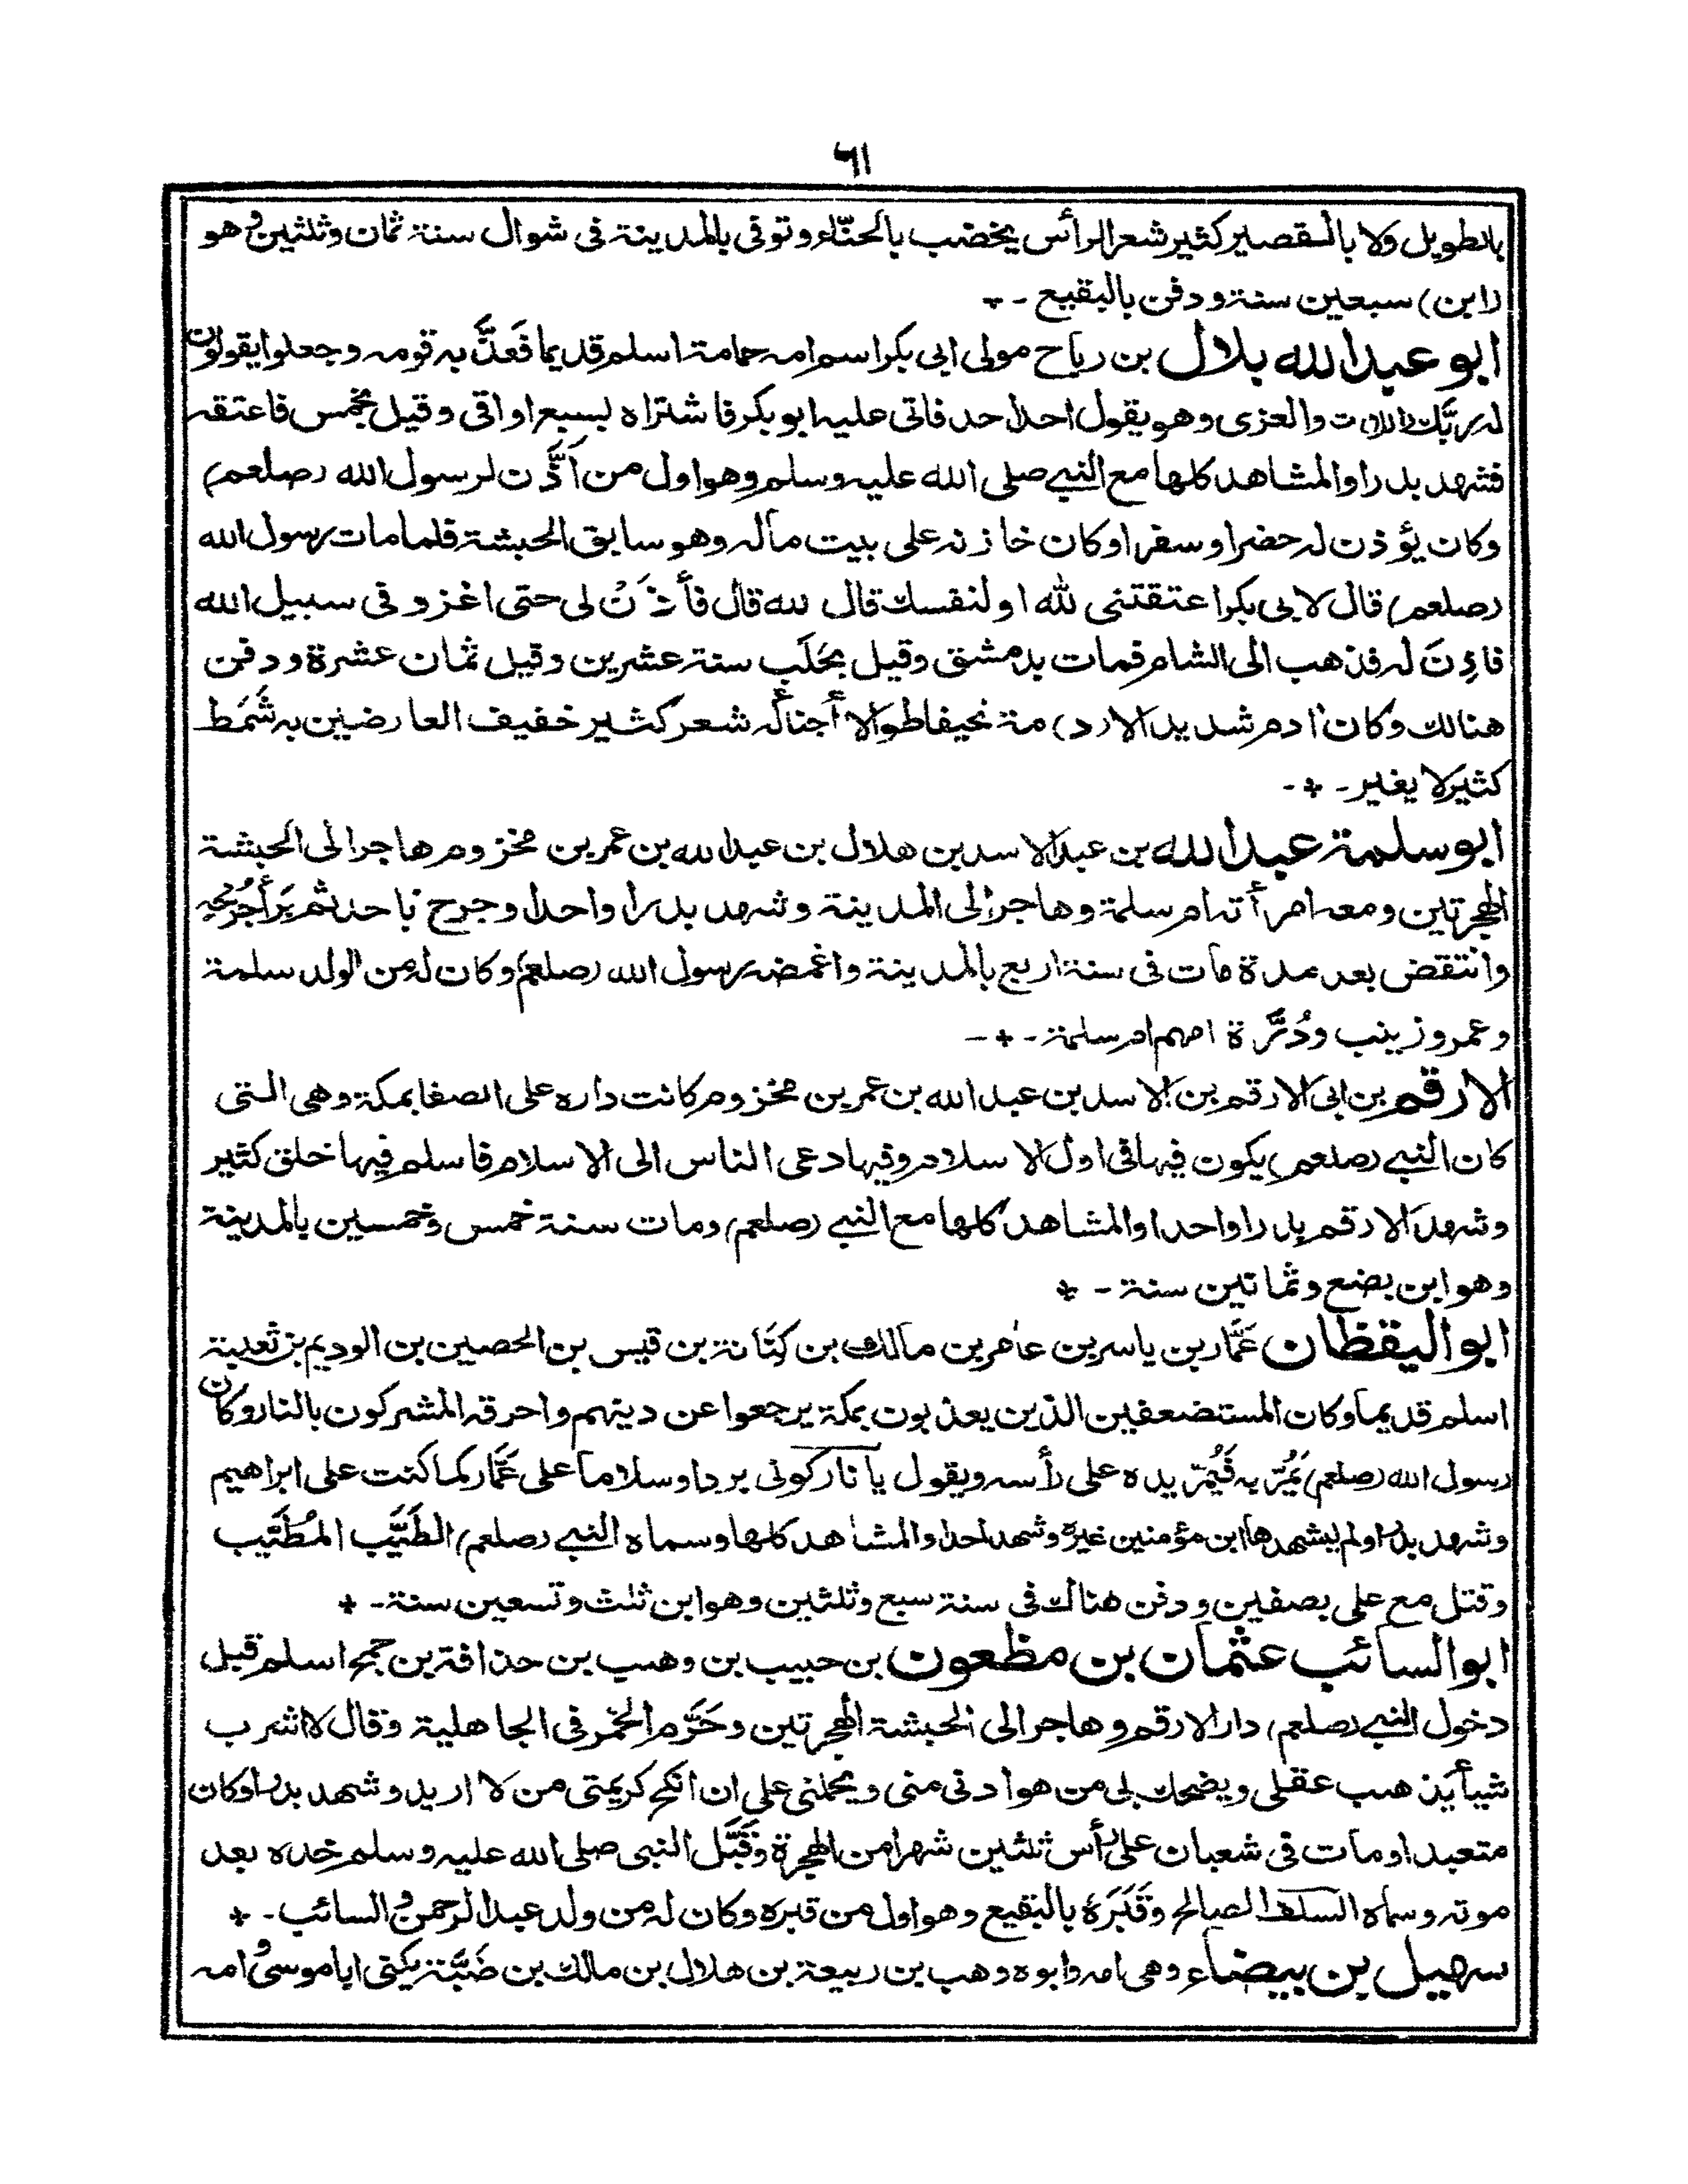 ٦١
بالطويل ولا بالقصير كثير شعر الرأس يخضب بالحنّاء وتوفى بالمدينة فى شوال سنة ثمان وثلثين وهو
(ابن) سبعين سنة ودفن بالبقيع - *
ابو عبد الله بلال بن رباح مولى ابى بكر اسم امه حمامة اسلم قديما فَعَذَّ به قومه وجعلوا يقولون
له ربَّك اللات والعزى وهو يقول احد احد فاتى عليه ابو بكر فاشتراه بسبع اواقى وقيل بخمس فاعتقه
فشهد بدرا والمشاهد كلها مع النبى صلى الله عليه وسلم وهو اول من أَذَّن لرسول الله (صلعم)
وكان يؤذن له حضرا وسفرا وكان خازنه على بيت ماله وهو سابق الحبشة فلما مات رسول الله
(صلعم) قال لابى بكر اعتقتنى لله او لنفسك قال لله قال فأذَنْ لى حتى اغزو فى سبيل الله
فاذِنَ له فذهب الى الشام فمات بدمشق وقيل بحَلَب سنة عشرين وقيل ثمان عشرة ودفن
هنالك وكان ادم شديد الا(د)مة نحيفا طوالا أجنأ له شعر كثير خفيف العارضين به شَمَط
كثير لا يغير - * -
ابو سلمة عبد الله بن عبد الاسد بن هلال بن عبد الله بن عمر بن مخزوم هاجر الى الحبشة
الهجرتين ومعه امرأته ام سلمة وهاجر الى المدينة وشهد بدرا واحدا وجرح باحد ثم بَرَأ جُرْحُه
وانتقض بعد مدة مات فى سنة اربع بالمدينة واغمضه رسول الله (صلعم) وكان له من الولد سلمة
وعمر وزينب ودُرَّة امهم ام سلمة - * -
الارقم بن ابى الارقم بن الاسد بن عبد الله بن عمر بن مخزوم كانت داره على الصفا بمكة وهى التى
كان النبى (صلعم) يكون فيها فى اول الاسلام وفيها دعى الناس الى الاسلام فاسلم فيها خلق كثير
وشهد الارقم بدرا واحدا والمشاهد كلها مع النبى (صلعم) ومات سنة خمس وخمسين بالمدينة
وهو ابن بضع وثمانين سنة - *
ابو اليقظان عَمَّار بن ياسر بن عامر بن مالك بن كِنَانة بن قيس بن الحصين بن الوديم بن ثعلبة
اسلم قديما وكان المستضعفين الذين يعذبون بمكة يرجعوا عن دينهم واحرقه المشركون بالنار وكان
رسول الله (صلعم) يَمُرّ به فَيُمِرّ يده على رأسه ويقول يا نار كونى بردا وسلاما على عَمَّار كما كنت على ابراهيم
وشهد بدرا ولم يشهدها ابن مؤمنين غيره وشهد احدا والمشاهد كلها وسماه النبى (صلعم) الطَيَّب المُطَيَّب
وقتل مع على بصفين ودفن هناك فى سنة سبع وثلثين وهو ابن ثلث وتسعين سنة - *
ابو السائب عثمان بن مظعون بن حبيب بن وهب بن حذافة بن جمح اسلم قبل
دخول النبى (صلعم) دار الارقم وهاجر الى الحبشة الهجرتين وحَرَّم الخمر فى الجاهلية وقال لا اشرب
شيأ يذهب عقلى ويضحك بى من هو ادنى منى ويحملنى على ان انكح كريمتى من لا اريد وشهد بدرا وكان
متعبدا ومات فى شعبان على رأس ثلثين شهرا من الهجرة وقَبَّل النبى صلى الله عليه وسلم خده بعد
موته وسماه السلف الصالح وقَبَرَهُ بالبقيع وهو اول من قبره وكان له من ولد عبد الرحمن والسائب - *
سهيل بن بيضاء وهى امه وابوه وهب بن ربيعة بن هلال بن مالك بن ضَبَّة يكنى ابا موسى وامه